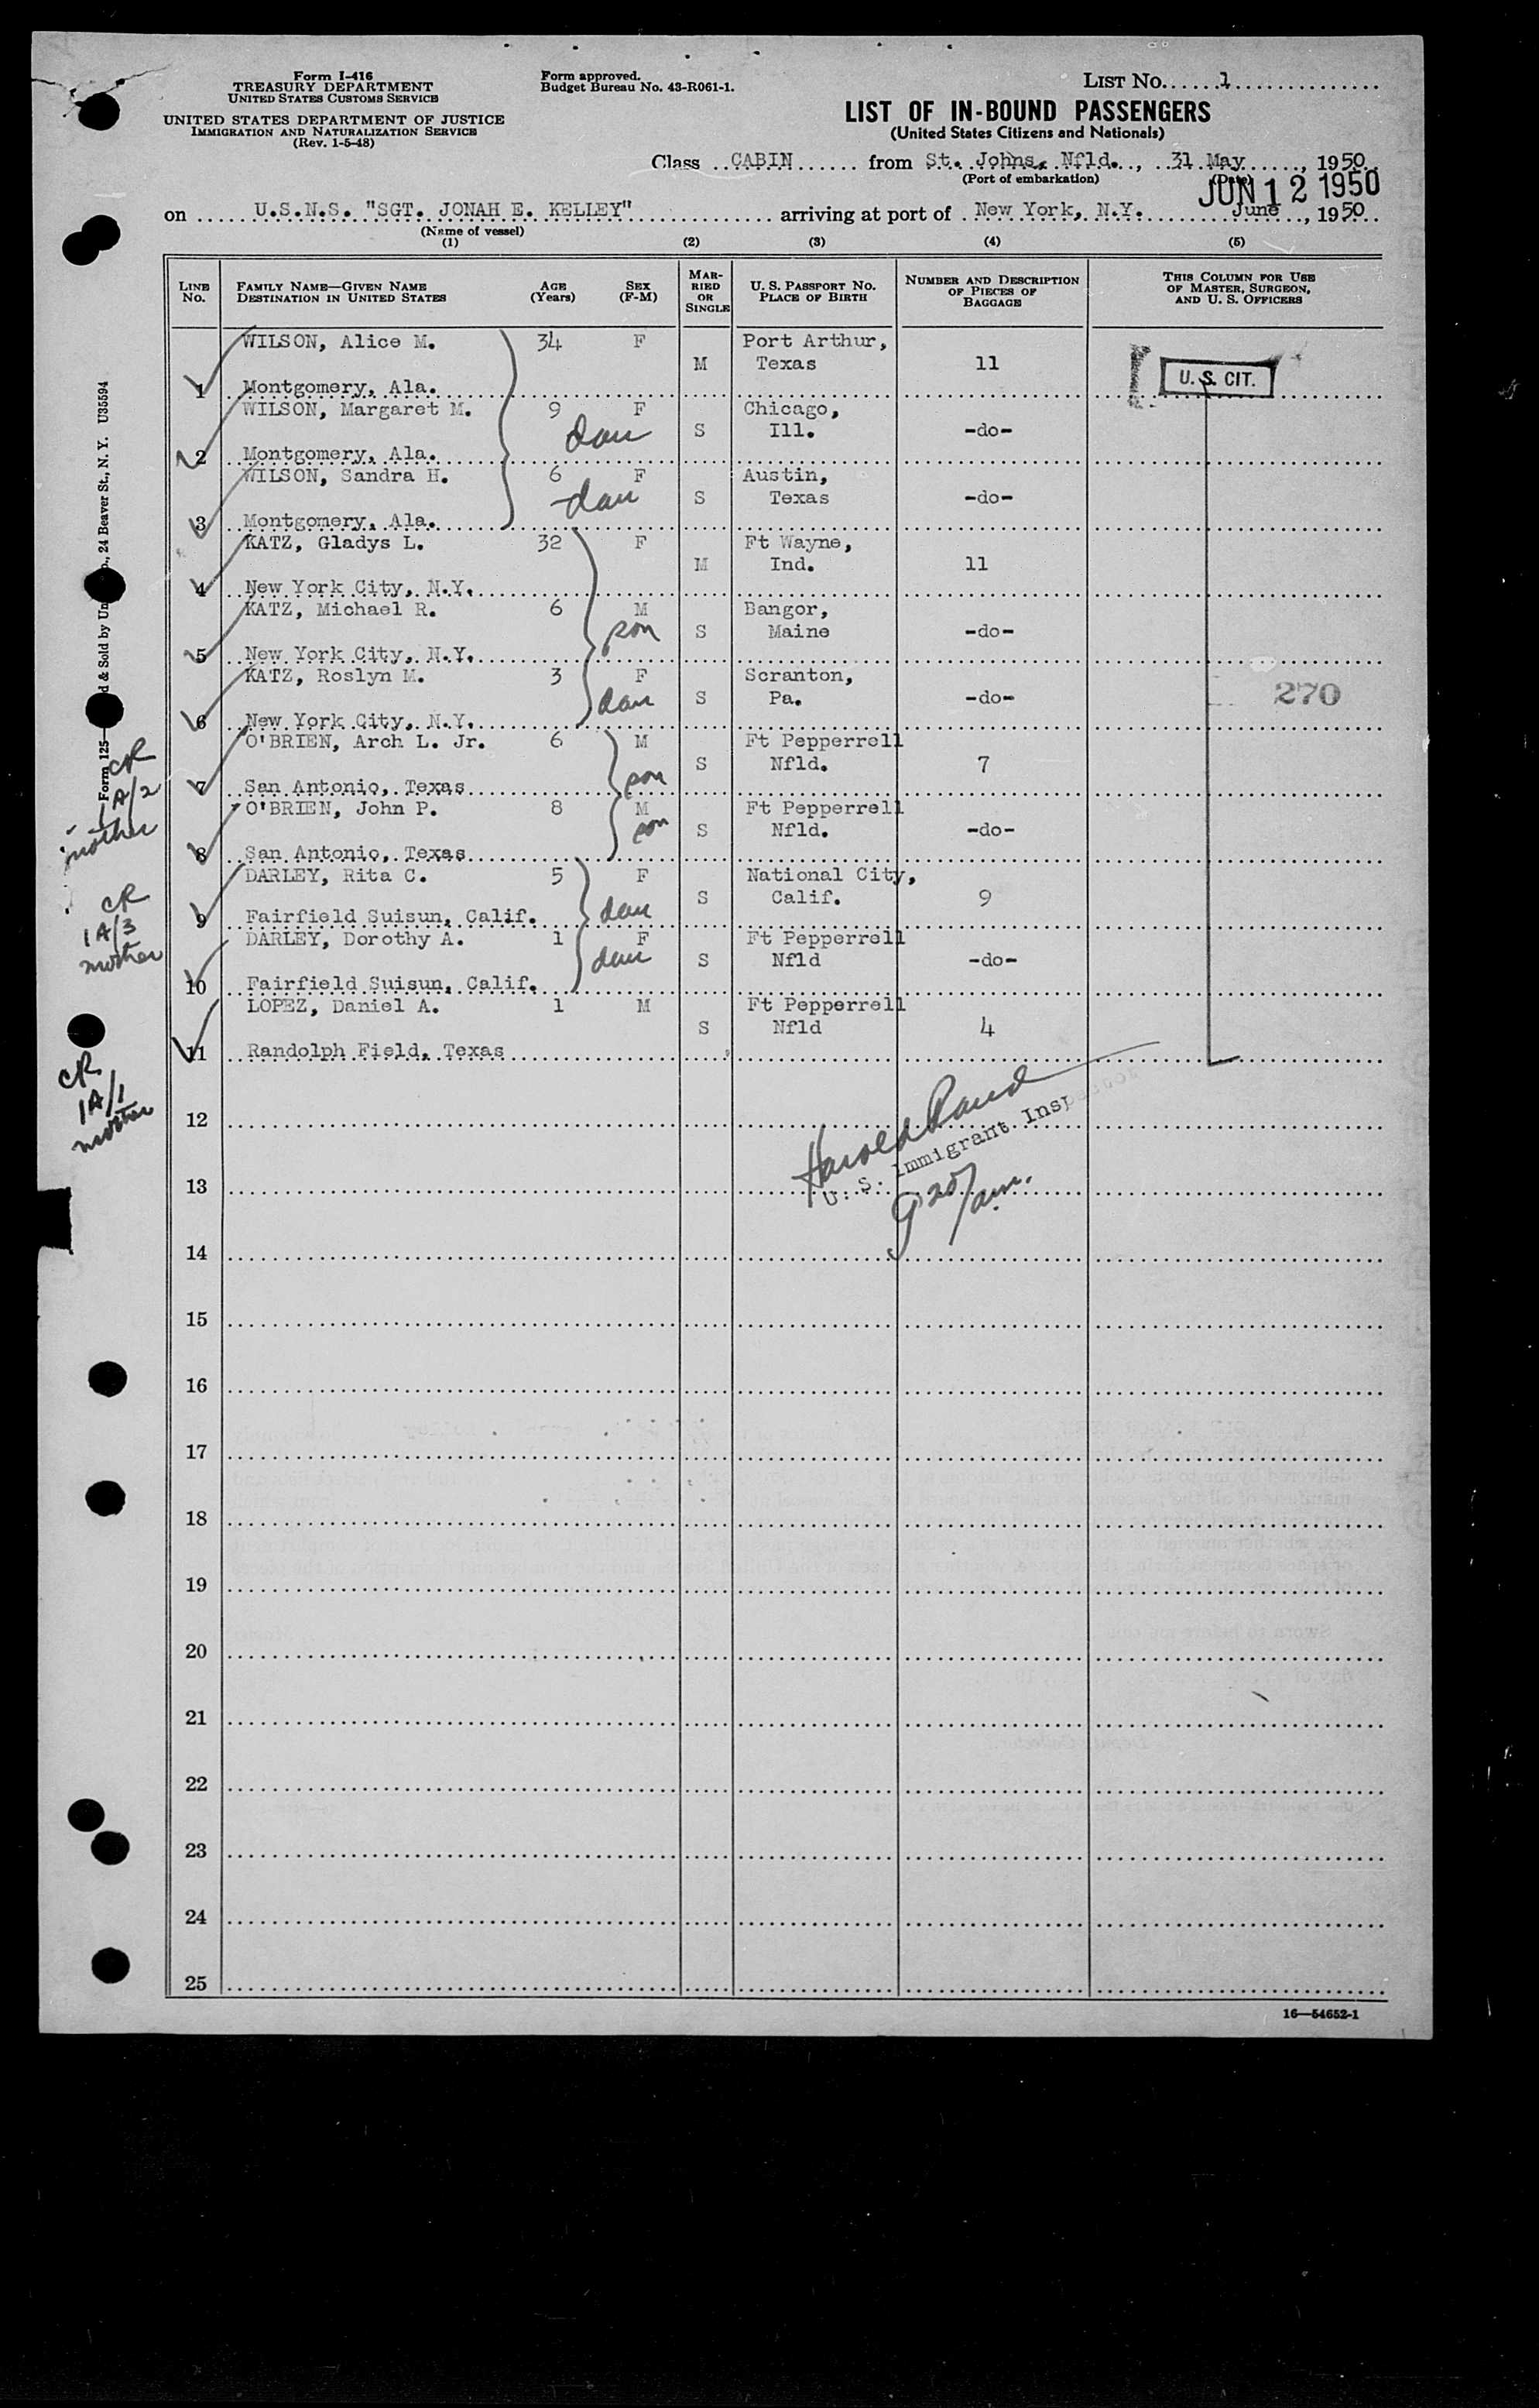 Form I-416
TREASURY DEPARTMENT
UNITED STATES CUSTOMS SERVICE
UNITED STATES DEPARTMENT OF JUSTICE
IMMIGRATION AND NATURALIZATION SERVICE
(Rev. 1-5-48)
Form approved.
Budget Bureau No. 43-R061-1.
LIST No. 1
LIST OF IN-BOUND PASSENGERS
(United States Citizens and Nationals)
Class CABIN from St. Johns, Nfld., 31 May, 1950
(Port of embarkation) (Date)
JUN 12 1950
on U.S.N.S. "SGT. JONAH E. KELLEY" arriving at port of New York, N.Y. June, 1950
(Name of vessel)
(1) (2) (3) (4) (5)
LINE No. FAMILY NAME—GIVEN NAME DESTINATION IN UNITED STATES AGE (Years) SEX (F-M) MARRIED OR SINGLE U. S. PASSPORT NO. PLACE OF BIRTH NUMBER AND DESCRIPTION OF PIECES OF BAGGAGE THIS COLUMN FOR USE OF MASTER, SURGEON, AND U. S. OFFICERS
WILSON, Alice M. 34 F Port Arthur,
M Texas 11 U. S. CIT.
1 Montgomery, Ala.
WILSON, Margaret M. 9 F Chicago,
dau S Ill. -do-
2 Montgomery, Ala.
WILSON, Sandra H. 6 F Austin,
dau S Texas -do-
3 Montgomery, Ala.
KATZ, Gladys L. 32 F Ft Wayne,
M Ind. 11
4 New York City, N.Y.
KATZ, Michael R. 6 M Bangor,
son S Maine -do-
5 New York City, N.Y.
KATZ, Roslyn M. 3 F Scranton,
dau S Pa. -do- 270
6 New York City, N.Y.
O'BRIEN, Arch L. Jr. 6 M Ft Pepperrell
son S Nfld. 7
7 San Antonio, Texas
O'BRIEN, John P. 8 M Ft Pepperrell
son S Nfld. -do-
8 San Antonio, Texas
DARLEY, Rita C. 5 F National City,
dau S Calif. 9
9 Fairfield Suisun, Calif.
DARLEY, Dorothy A. 1 F Ft Pepperrell
dau S Nfld -do-
10 Fairfield Suisun, Calif.
LOPEZ, Daniel A. 1 M Ft Pepperrell
S Nfld 4
11 Randolph Field, Texas
CR
1A/2
mother
CR
1A/3
mother
CR
1A/1
mother
Harold Rand
U. S. Immigrant Inspector
9 20/am.
12
13
14
15
16
17
18
19
20
21
22
23
24
25
16—54652-1
Form 125
d & Sold by Un
, 24 Beaver St., N. Y. U35594